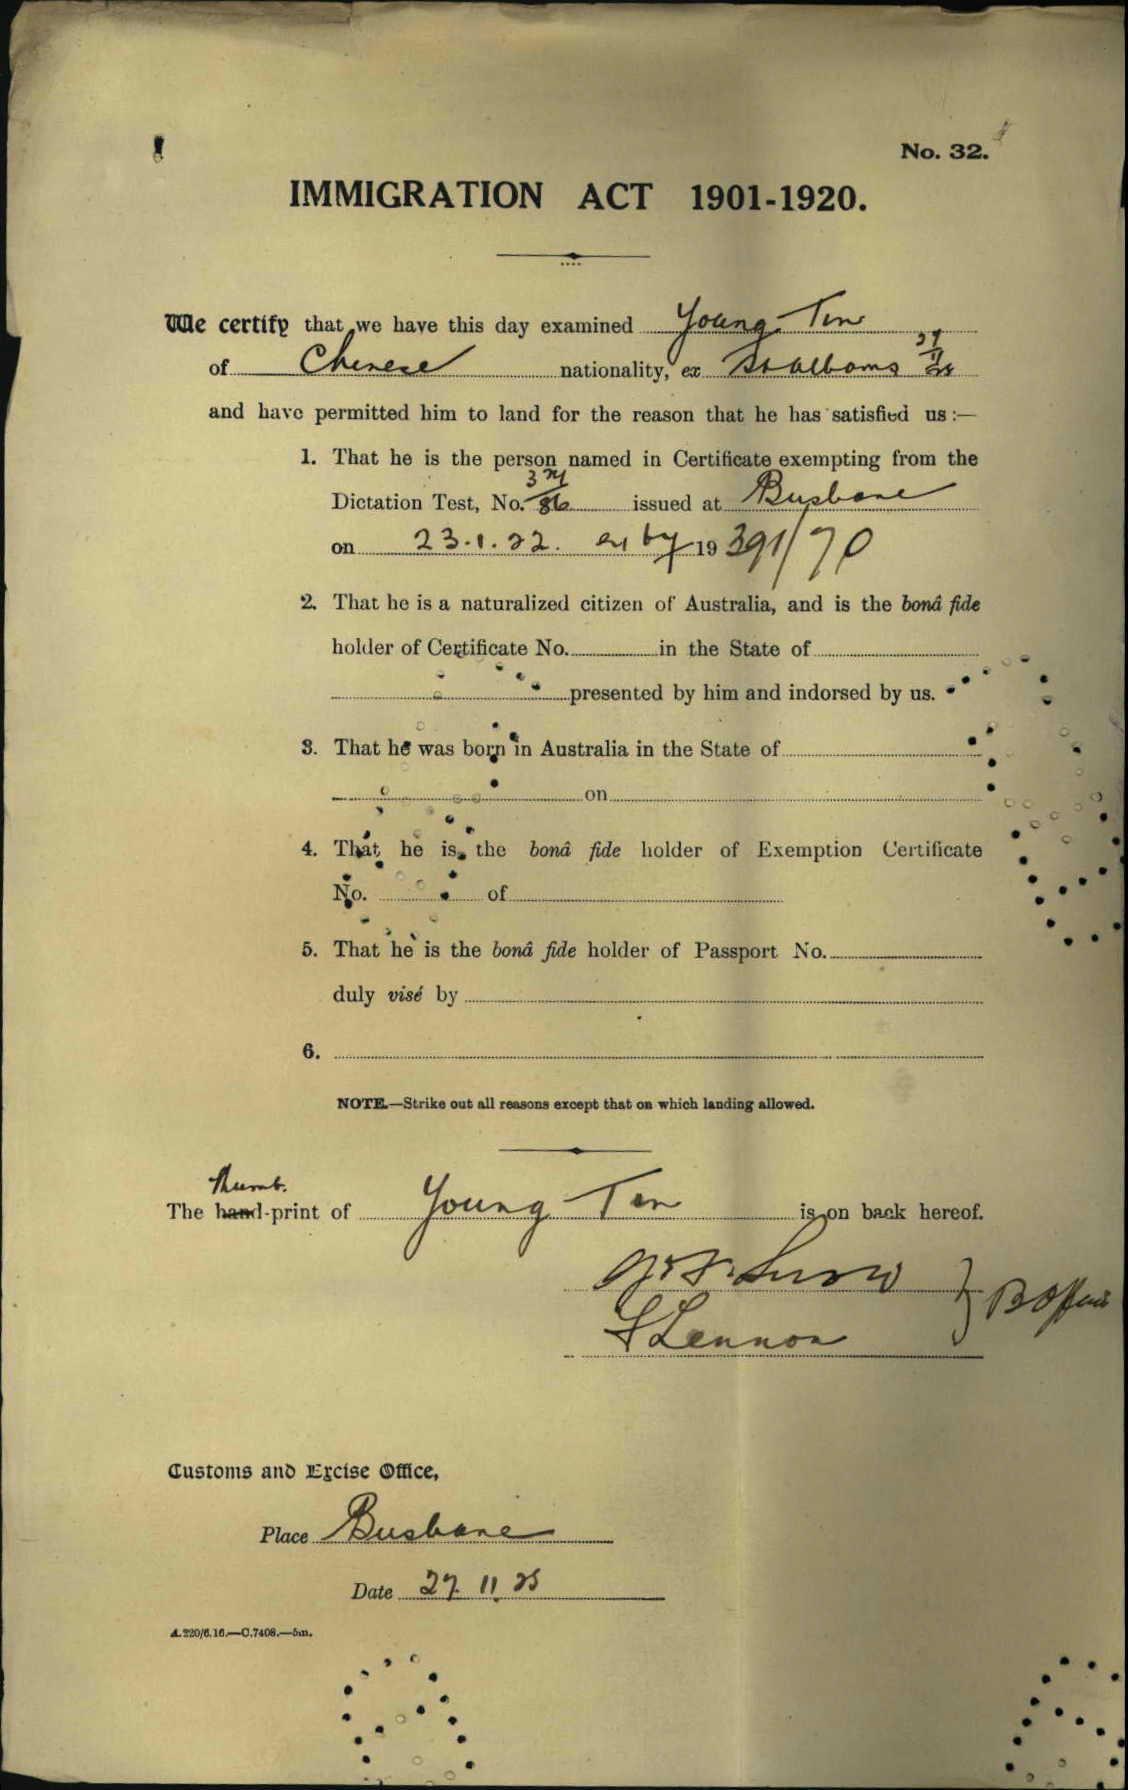 No. 32.
IMMIGRATION ACT 1901-1920.
We certify that we have this day examined Young Tin
of Chinese nationality, ex St Albans 27/11/25
and have permitted him to land for the reason that he has satisfied us :—
1. That he is the person named in Certificate exempting from the
Dictation Test, No. 86 issued at Brisbane
on 23.1.22. by 19 391/70
2. That he is a naturalized citizen of Australia, and is the bonâ fide
holder of Certificate No. in the State of
presented by him and indorsed by us.
3. That he was born in Australia in the State of
on
4. That he is the bonâ fide holder of Exemption Certificate
No. of
5. That he is the bonâ fide holder of Passport No.
duly visé by
6.
NOTE.—Strike out all reasons except that on which landing allowed.
thumb.
The hand-print of Young Tin is on back hereof.
Lennon
Customs and Excise Office,
Place Brisbane
Date 27.11.25
A.220/6.16.—C.7408.—5m.